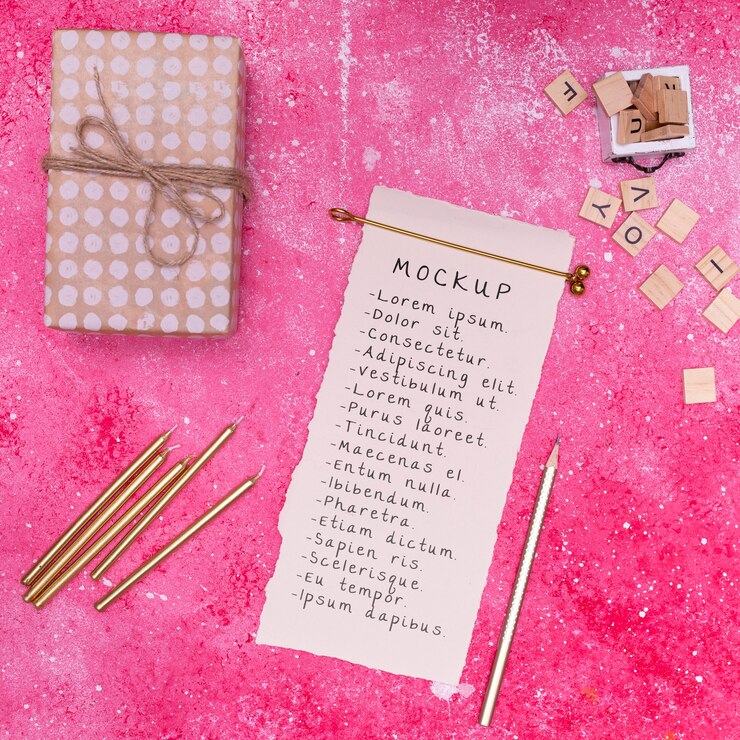 MOCKUP
-Lorem ipsum.
-Dolor sit.
-Consectetur.
-Adipiscing elit.
-Vestibulum ut.
-Lorem quis.
-Purus laoreet.
-Tincidunt.
-Maecenas el.
-Entum nulla.
-Ibibendum.
-Pharetra.
-Etiam dictum.
-Sapien ris.
-Scelerisque.
-Eu tempor.
-Ipsum dapibus.
F
U
V
Y
O
I